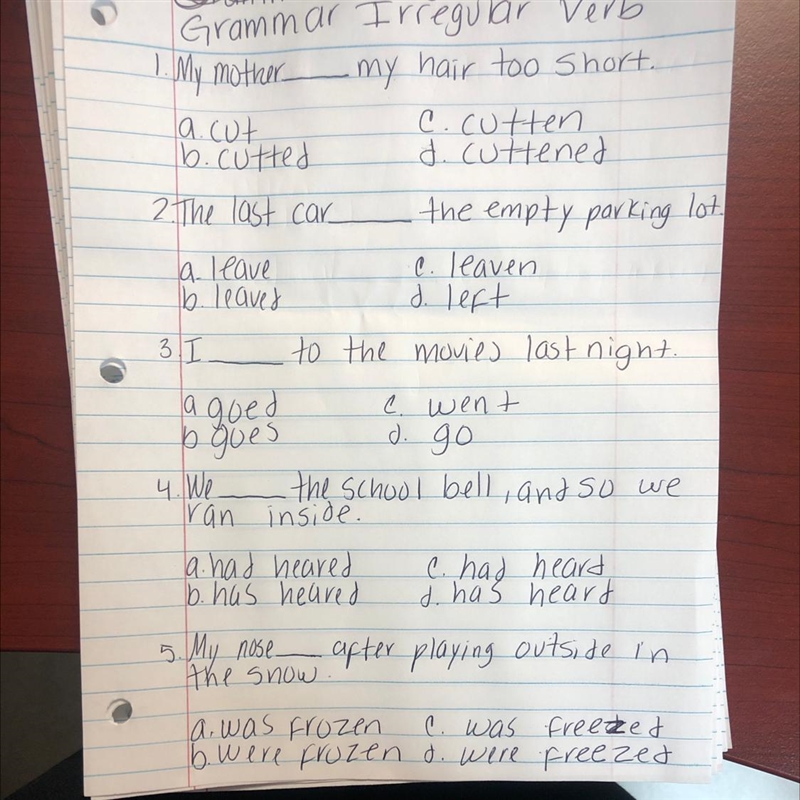 Grammar Irregular Verb
1. My mother____ my hair too short.
a. cut c. cutten
b. cutted d. cuttened
2. The last car____ the empty parking lot.
a. leave c. leaven
b. leaved d. left
3. I ____ to the movies last night.
a goed c. went
b goes d. go
4. We ____ the school bell, and so we
ran inside.
a. had heared c. had heard
b. has heared d. has heard
5. My nose____ after playing outside in
the snow.
a. was frozen c. was freezed
b. were frozen d. were freezed